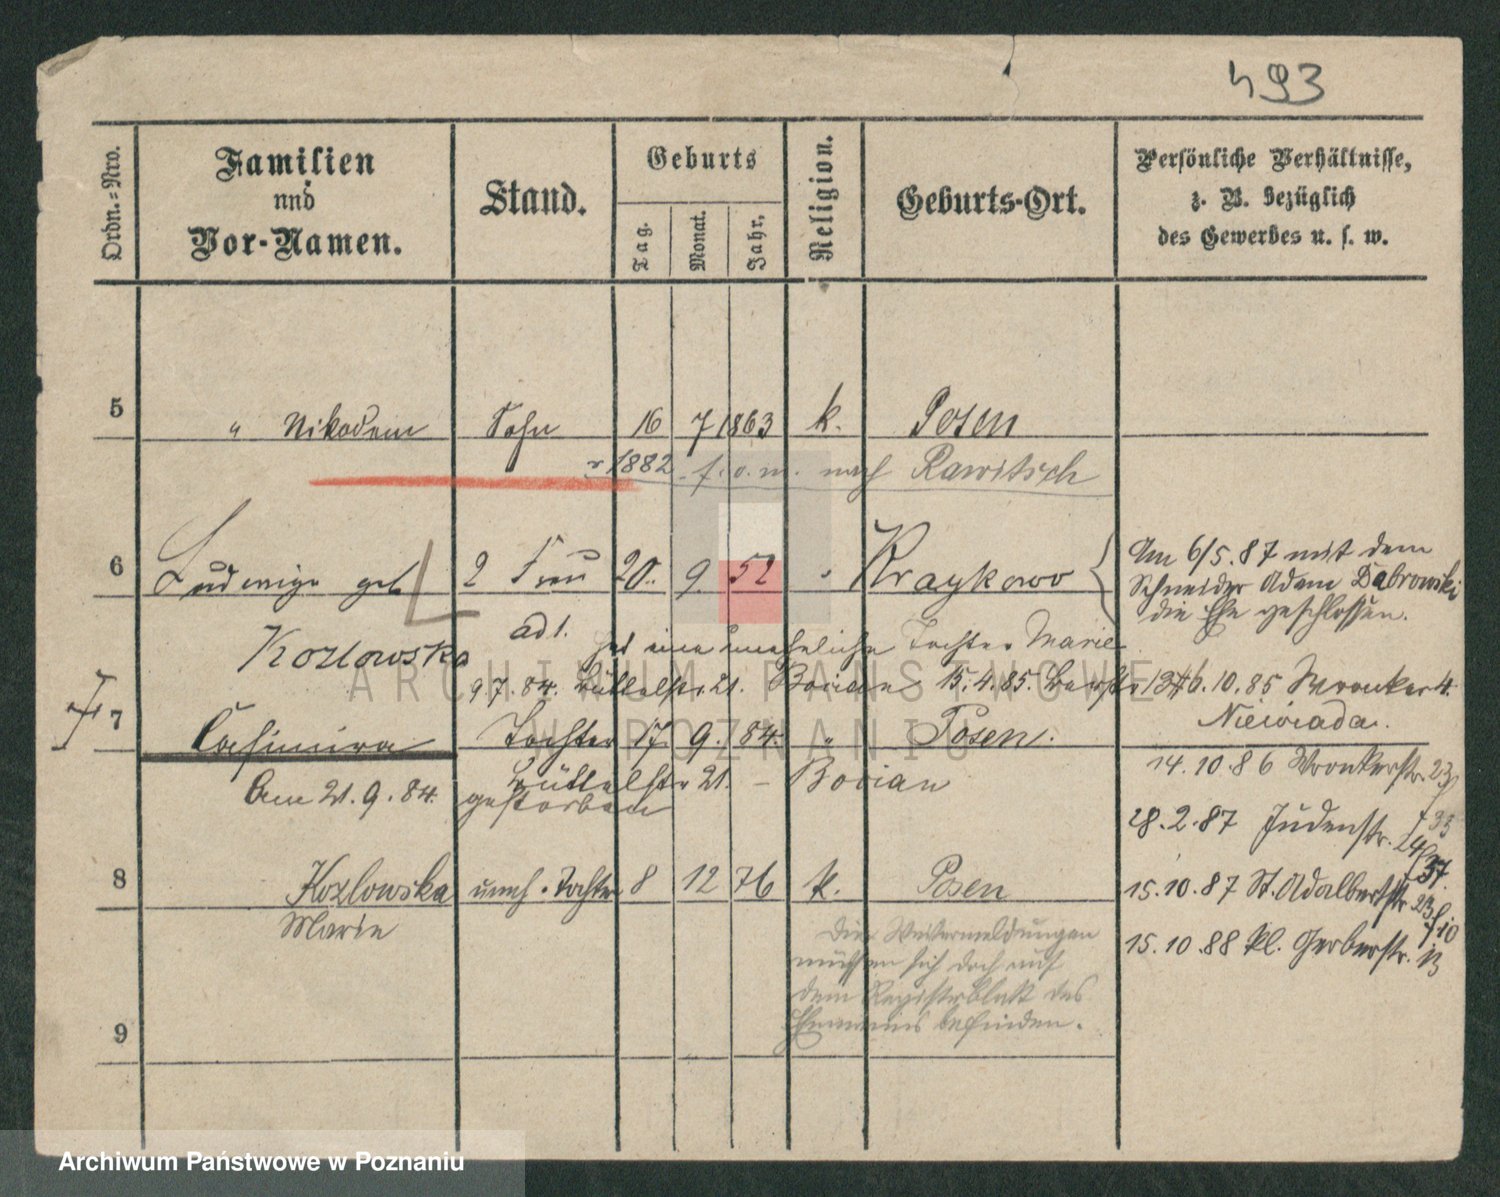 493
Ordn.-Nro.
Familien
und
Vor-Namen.
Stand.
Geburts
Tag.
Monat.
Jahr.
Religion.
Geburts-Ort.
Persönliche Verhältnisse,
z. B. bezüglich
des Gewerbes u. s. w.
5 " Nikodem Sohn 16 7 1863 k. Posen
1882 nach Rawitsch
6 Ludwiga geb 2 Frau 20. 9. 52 " Kraykowo
Kozlowska
Am 6/5.87 mit dem
Schneider Adam Dabrowski
die Ehe geschlossen.
ad 1. hat eine uneheliche Tochter Marie
9 7. 84. Büttelstr. 21. Bocian 15. 4. 85. 6.10.85 Wronker 4.
Niewiada.
7 Casimira Tochter 17. 9. 84. " Posen.
Am 21. 9. 84. Büttelstr 21. – Bocian
gestorben
14. 10. 86 Wronkerstr. 23
28. 2. 87 Judenstr.
8 Kozlowska uneh. Tochter 8 12 76 k. Posen
Marie
15. 10. 87 St. Adalbertstr. 23
15. 10. 88 kl. Gerberstr.
Die Weitermeldungen
müssen sich doch auf
dem Registerblatt des
Ehemannes befinden.
9
ARCHIWUM PAŃSTWOWE
W POZNANIU
Archiwum Państwowe w Poznaniu